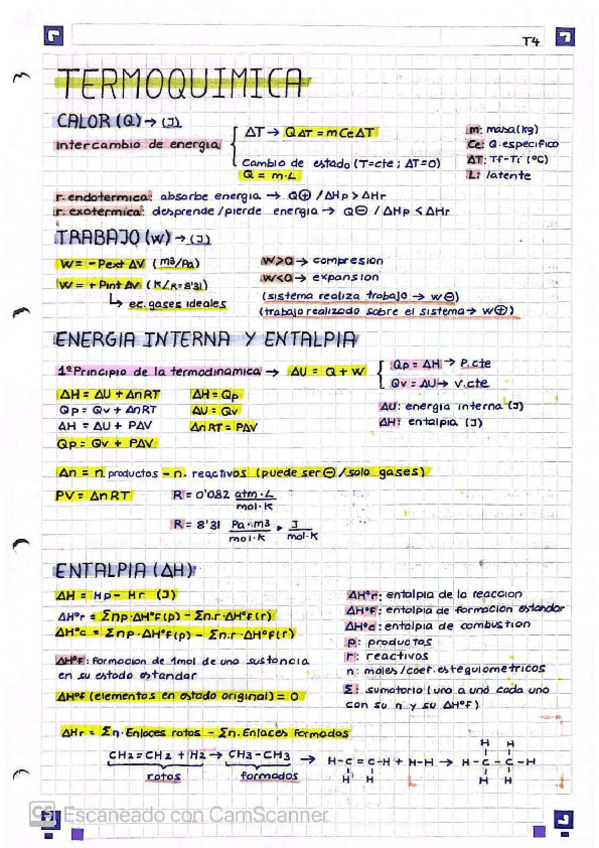 T4
TERMOQUIMICA
CALOR (Q) → (J)
Intercambio de energia
ΔT → QΔT = mCeΔT
Cambio de estado (T=cte ; ΔT=0)
Q = m·L
m: masa (kg)
Ce: Q.especifico
ΔT: Tf-Ti (ºC)
L: latente
r. endotermica: absorbe energia → Q⊕ / ΔHp > ΔHr
r. exotermica: desprende/pierde energia → Q⊖ / ΔHp < ΔHr
TRABAJO (W) → (J)
W = - Pext ΔV (m3/Pa)
W = + Pint ΔV (K/R=8'31)
↳ ec. gases ideales
W>0 → compresion
W<0 → expansion
(sistema realiza trabajo → W⊖)
(trabajo realizado sobre el sistema → W⊕)
ENERGIA INTERNA Y ENTALPIA
1º Principio de la termodinamica → ΔU = Q + W
Qp = ΔH → P.cte
Qv = ΔU → V.cte
ΔH = ΔU + ΔnRT ΔH = Qp
Qp = Qv + ΔnRT ΔU = Qv
ΔH = ΔU + PΔV ΔnRT = PΔV
Qp = Qv + PΔV
ΔU: energia interna (J)
ΔH: entalpia (J)
Δn = n. productos - n. reactivos (puede ser ⊖ / solo gases)
PV = ΔnRT R = 0'082 atm·L / mol·K
R = 8'31 Pa·m3 / mol·K , J / mol·K
ENTALPIA (ΔH)
ΔH = Hp - Hr (J)
ΔHºr = Σnp·ΔHºf(p) - Σn.r·ΔHºf(r)
ΔHºc = Σnp·ΔHºf(p) - Σn.r·ΔHºf(r)
ΔHºf: formacion de 1mol de una sustancia
en su estado estandar
ΔHºf (elementos en estado original) = 0
ΔHºr: entalpia de la reaccion
ΔHºf: entalpia de formacion estandar
ΔHºc: entalpia de combustion
p: productos
r: reactivos
n: moles/coef. estequiometricos
Σ: sumatorio (uno a uno cada uno
con su n y su ΔHºf)
ΔHr = Σn. Enlaces rotos - Σn. Enlaces formados
CH2=CH2 + H2 → CH3-CH3 → H-C=C-H + H-H → H-C-C-H
rotos formados
H H
H H
H H
CS Escaneado con CamScanner